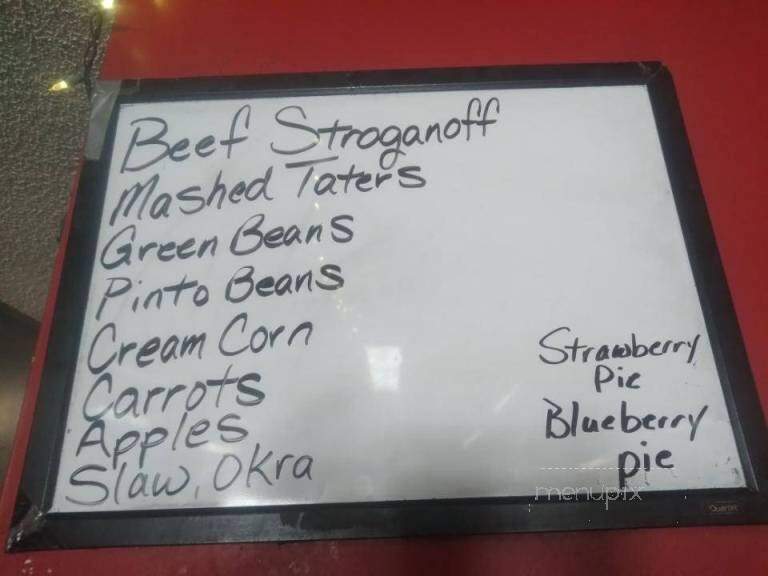 Beef Stroganoff
Mashed Taters
Green Beans
Pinto Beans
Cream Corn
Carrots
Apples
Slaw, Okra
Strawberry
Pie
Blueberry
pie
menupix
Quartet